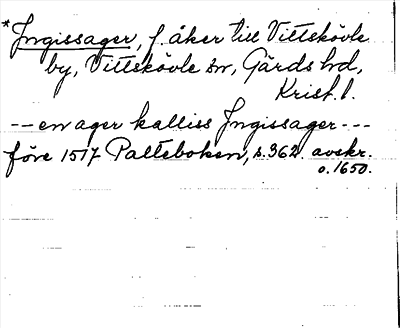 *Jngissager, f. åker till Vittskövle
by, Vittskövle sn, Gärds hd,
Krist. l.
-- en ager kalliss Jngissager ---
före 1517 Palteboken, s. 362. avskr.
o. 1650.